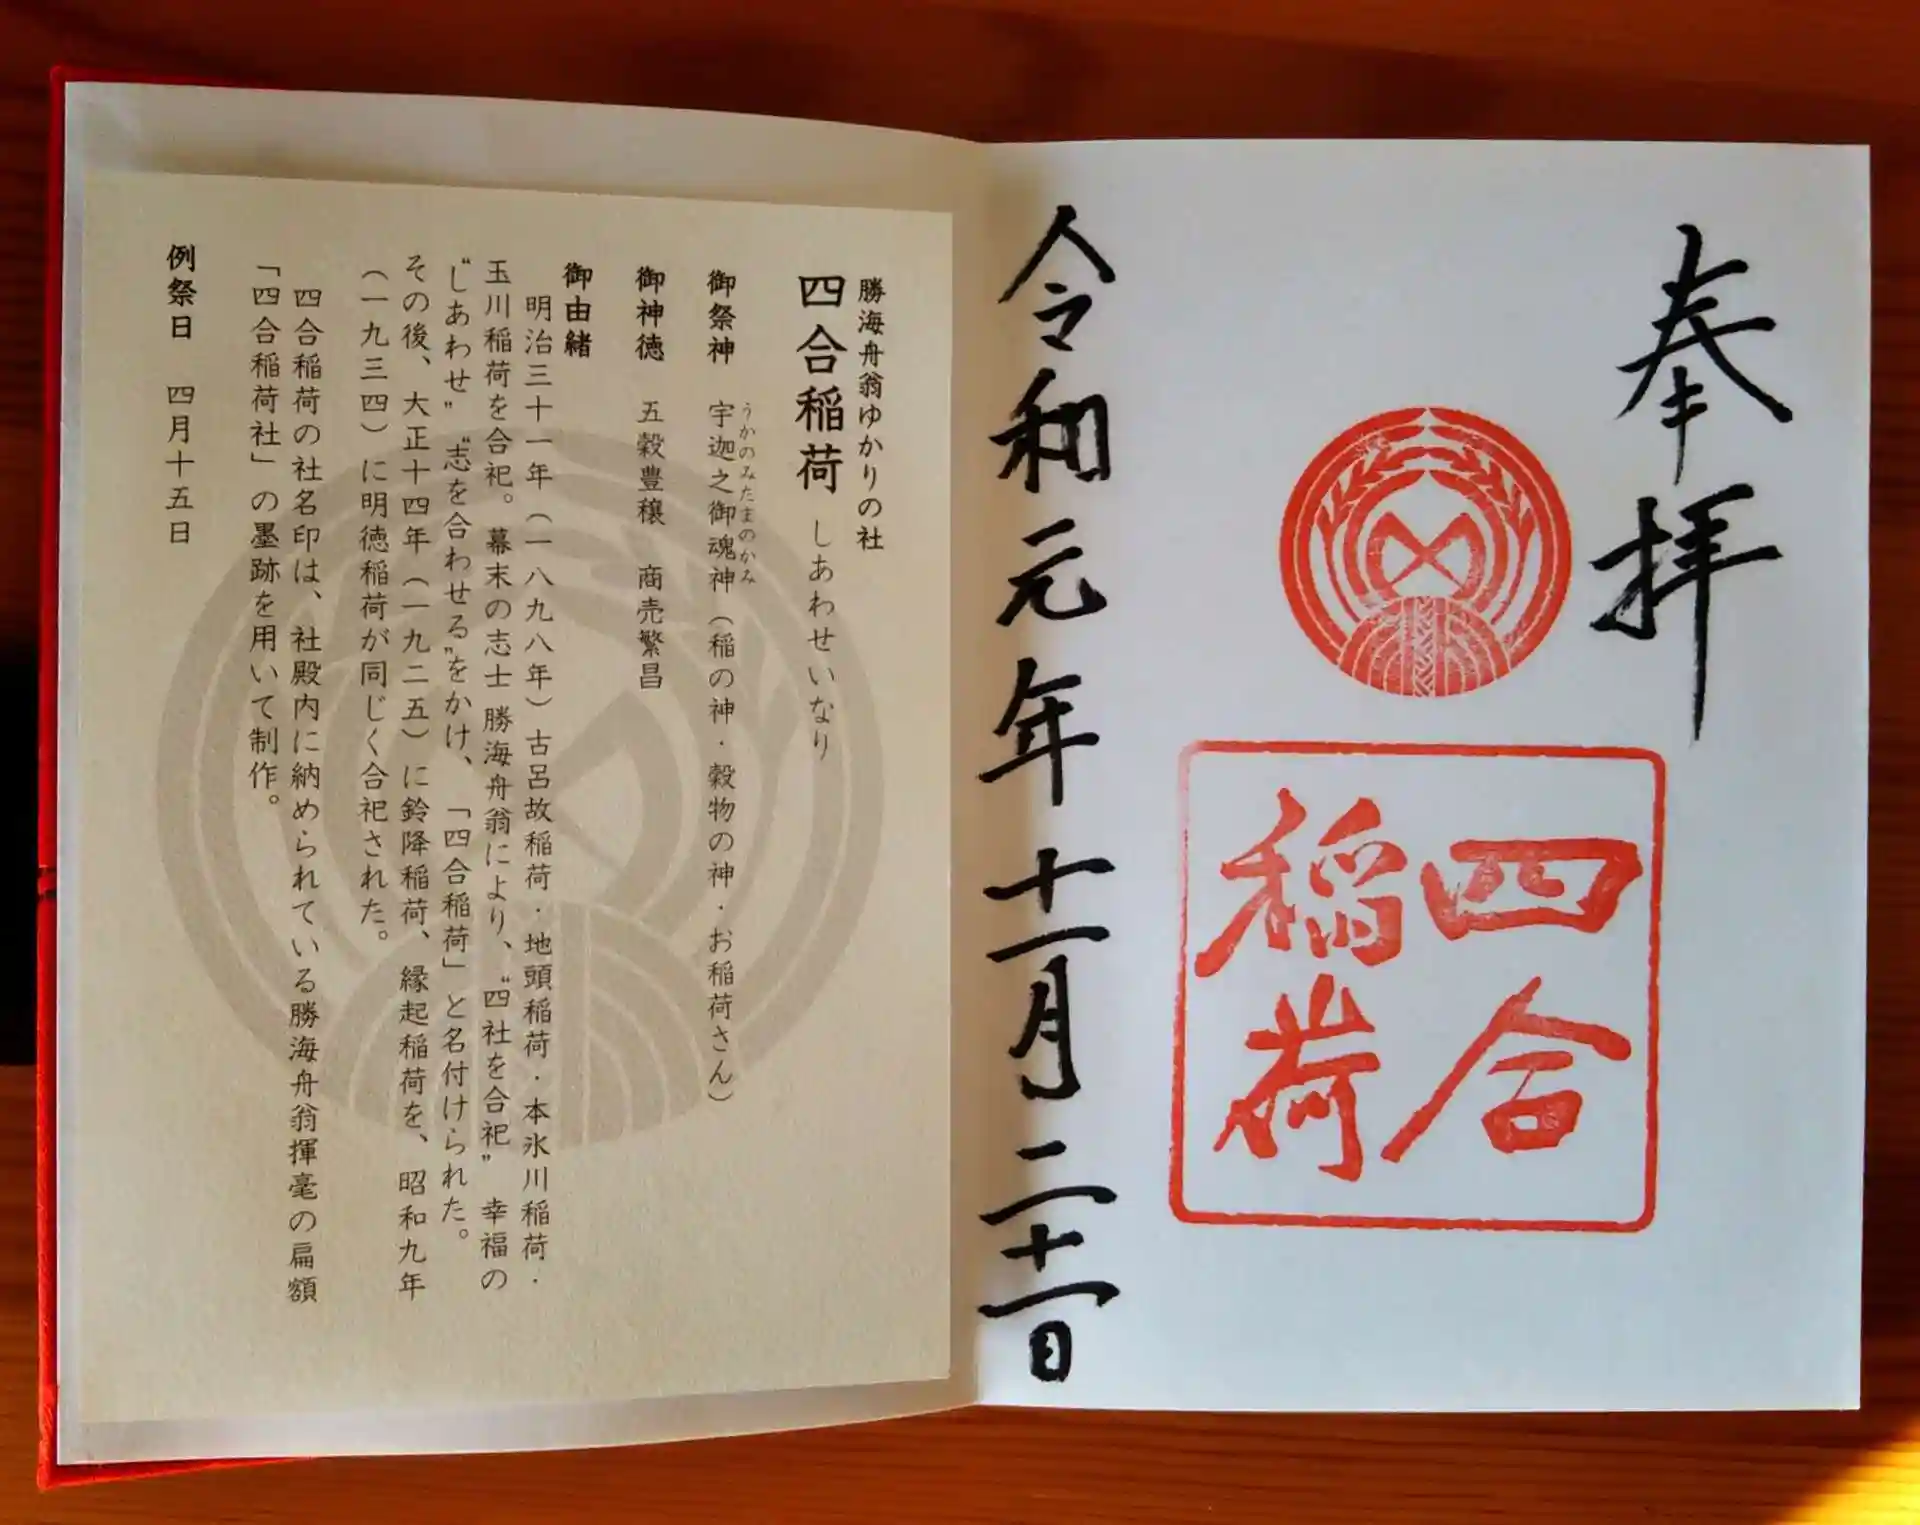 奉拝
四合
稲荷
令和元年十一月二十一日
勝海舟翁ゆかりの社
四合稲荷 しあわせいなり
御祭神 宇迦之御魂神(稲の神・穀物の神・お稲荷さん)
うかのみたまのかみ
御神徳 五穀豊穣 商売繁昌
御由緒
明治三十一年(一八九八年)古呂故稲荷・地頭稲荷・本氷川稲荷・
玉川稲荷を合祀。幕末の志士 勝海舟翁により、“四社を合祀” 幸福の
“しあわせ” “志を合わせる”をかけ、「四合稲荷」と名付けられた。
その後、大正十四年(一九二五)に鈴降稲荷、縁起稲荷を、昭和九年
(一九三四)に明徳稲荷が同じく合祀された。
四合稲荷の社名印は、社殿内に納められている勝海舟翁揮毫の扁額
「四合稲荷社」の墨跡を用いて制作。
例祭日 四月十五日